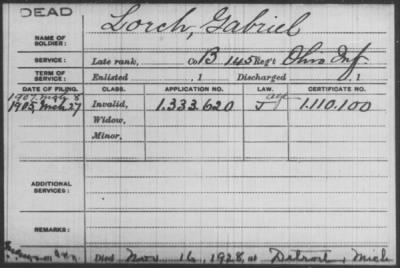 DEAD
NAME OF SOLDIER: Lorch, Gabriel
SERVICE: Late rank, Co. B 145 Reg't Ohio Inf.
TERM OF SERVICE: Enlisted , 1 Discharged , 1
DATE OF FILING. CLASS. APPLICATION NO. LAW. CERTIFICATE NO.
1907, Mch 8
1905, Mch 27 Invalid, 1.333.620 J age 1.110.100
Widow,
Minor,
ADDITIONAL SERVICES:
REMARKS:
Died Nov. 16, 1928, at Detroit, Mich